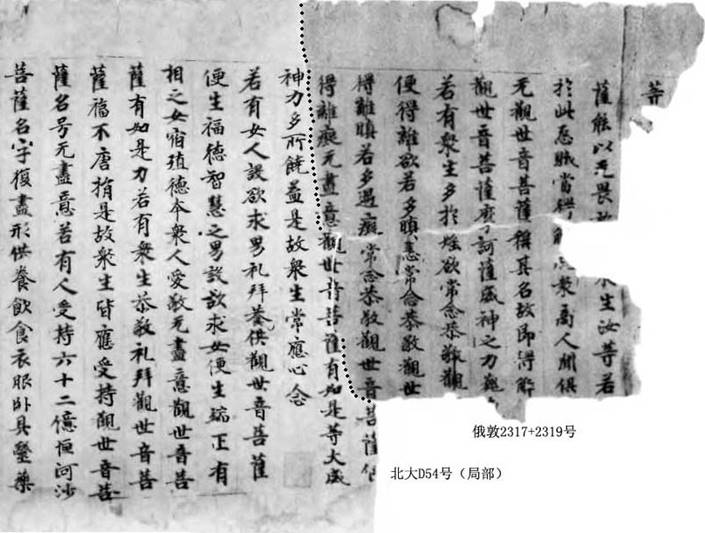 菩
薩能以无畏 生汝等若
於此怨賊當得 衆商人聞俱
无觀世音菩薩稱其名故即得解
觀世音菩薩摩訶薩威神之力巍
若有衆生多於婬欲常念恭敬觀
便得離欲若多瞋恚常念恭敬觀世
得離瞋若多愚癡常念恭敬觀世音菩薩便
得離癡无盡意觀世音菩薩有如是等大威
神力多所饒益是故衆生常應心念
若有女人設欲求男礼拜養供觀世音菩薩
便生福德智慧之男設欲求女便生端正有
相之女宿殖德本衆人愛敬无盡意觀世音菩
薩有如是力若有衆生恭敬礼拜觀世音菩
薩福不唐捐是故衆生皆應受持觀世音菩
薩名号无盡意若有人受持六十二億恒河沙
菩薩名字復盡形供養飲食衣服卧具醫藥
俄敦2317+2319号
北大D54号（局部）